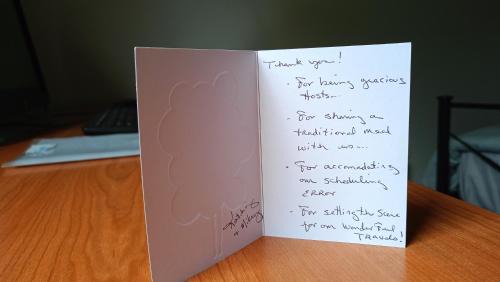 Thank you!
· For being gracious
Hosts...
· For sharing a
traditional meal
with us...
· For accomodating
our scheduling
ERROR
· For setting the scene
for our wonderful
Travels!